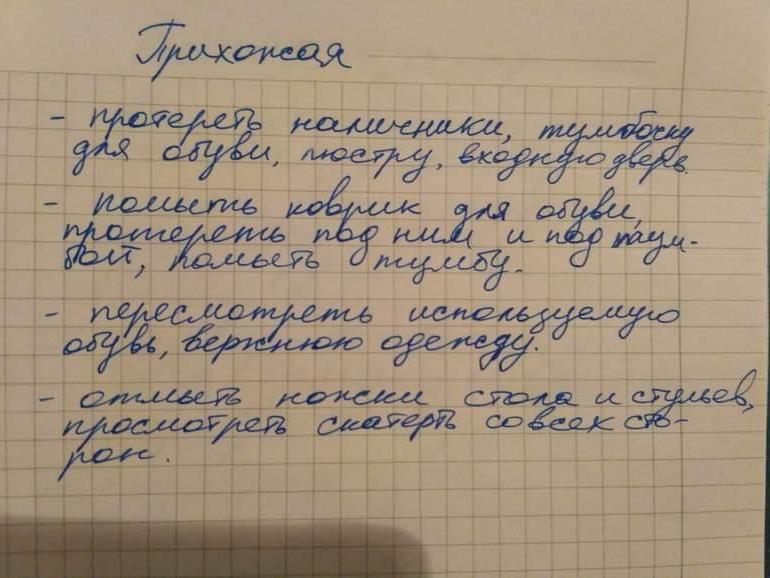 Прихожая
- протереть наличники, тумбочку
для обуви, люстру, входную дверь.
- помыть коврик для обуви,
протереть под ним и под тум-
бой, помыть тумбу.
- пересмотреть используемую
обувь, верхнюю одежду.
- отмыть ножки стола и стульев,
просмотреть скатерть со всех сто-
рон.